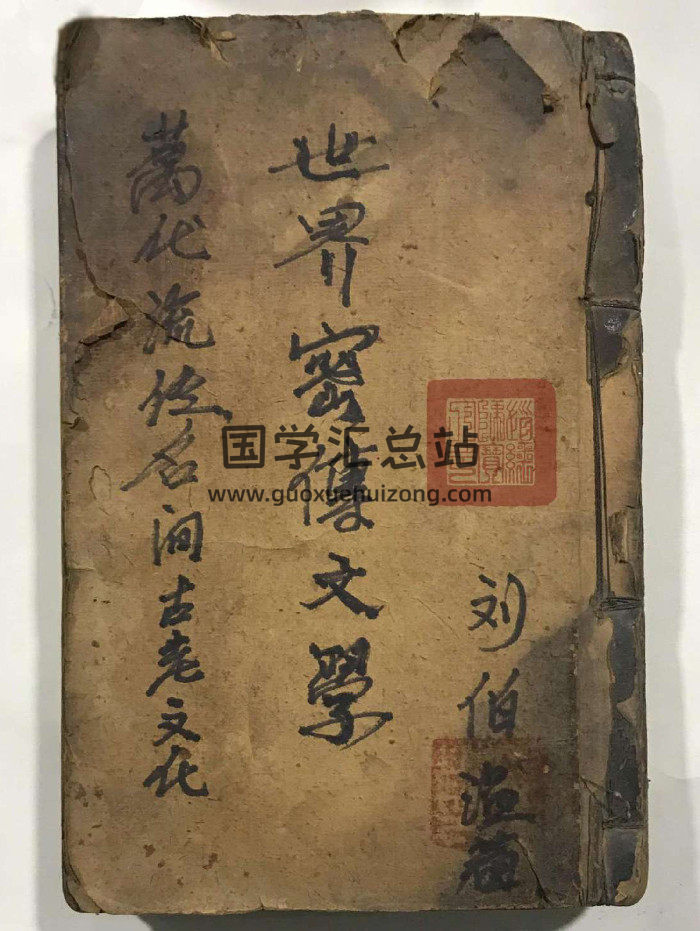 刘伯温
世界密傳文學
萬代流传名间古老文化
国学汇总站
www.guoxuehuizong.com